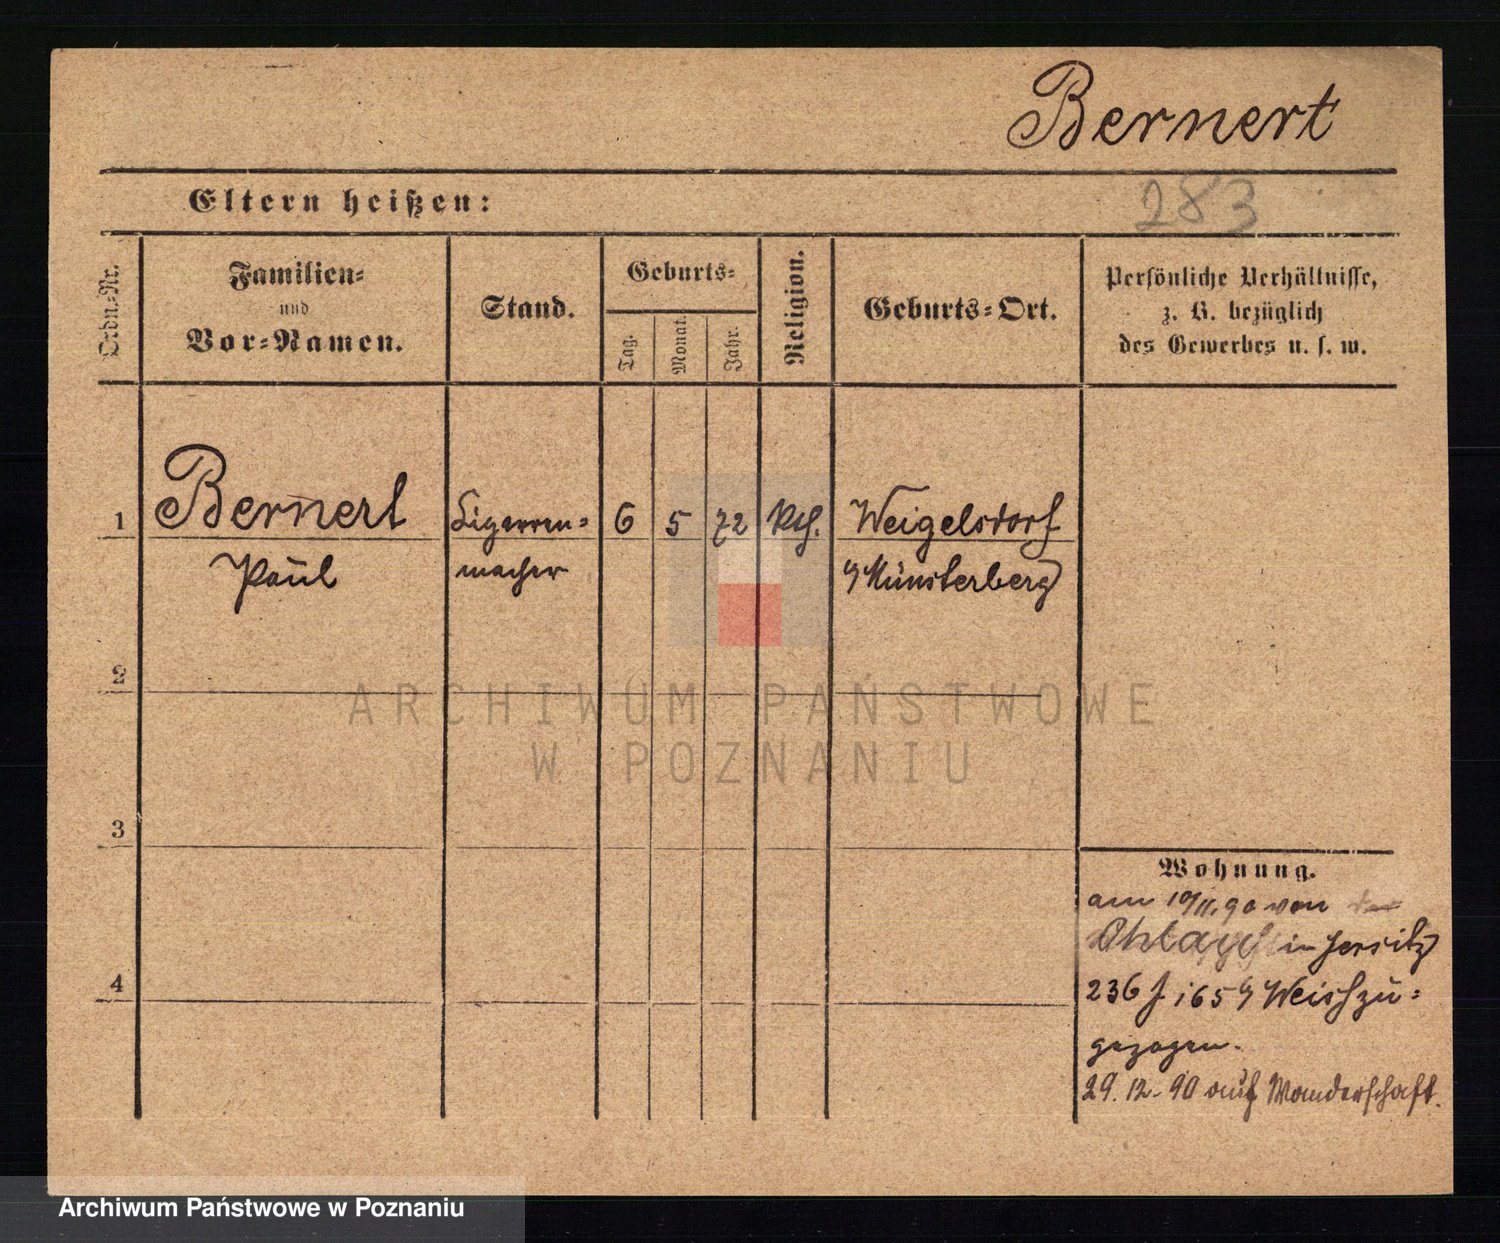 Bernert
Eltern heißen:
283
Ordn.=Nr.
Familien=
und
Vor=Namen.
Stand.
Geburts=
Tag.
Monat.
Jahr.
Religion.
Geburts=Ort.
Persönliche Verhältnisse,
z. B. bezüglich
des Gewerbes u. s. w.
1
Bernert
Cigarren=
6
5
72
Kth.
Weigelsdorf
Paul
macher
Münsterberg
2
ARCHIWUM PAŃSTWOWE
W POZNANIU
3
Wohnung.
am 19/11.90 von
in Jersitz
236 f i65 Weish zu=
gezogen.
29.12.90 auf Wanderschaft.
4
Archiwum Państwowe w Poznaniu